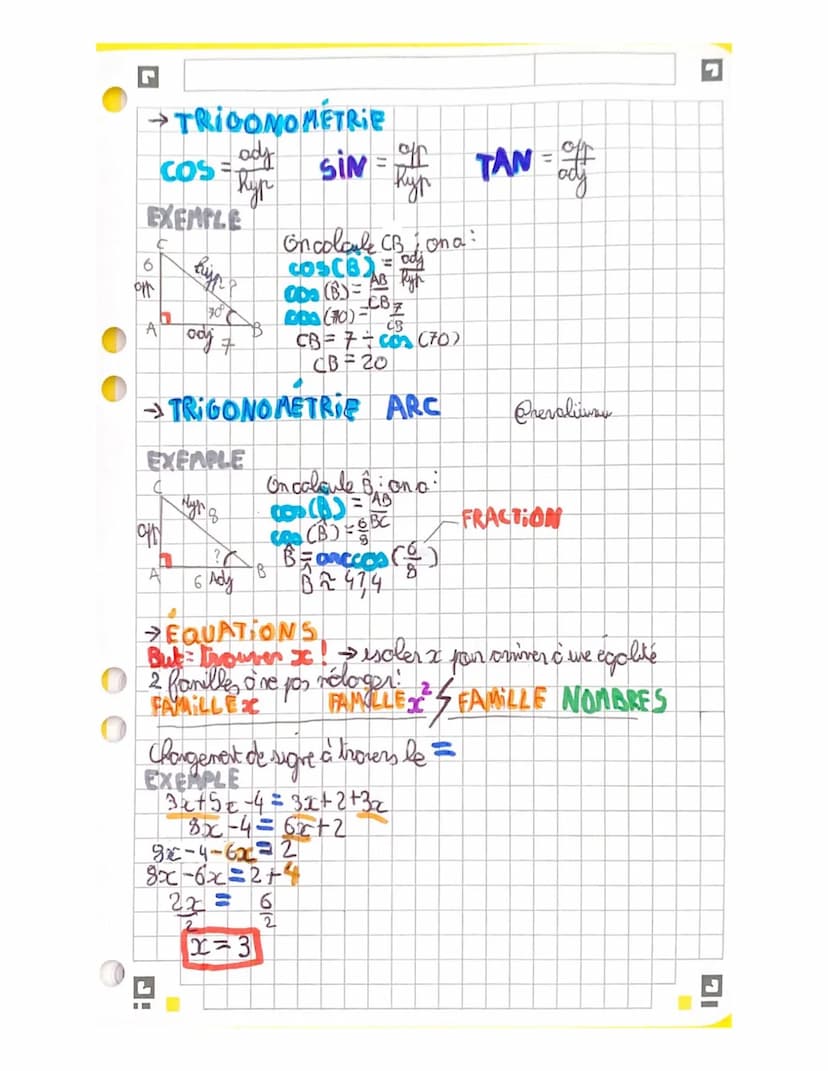 → TRIGONOMÉTRIE
COS = adj/hyp SIN = opp/hyp TAN = opp/adj
EXEMPLE
On calcule CB ; on a :
C
6
opp
hyp ?
70°
A
adj 7
B
cos(B) = adj/hyp
cos (B) = AB/CB
cos (70) = 7/CB
CB = 7 ÷ cos (70)
CB = 20
→ TRIGONOMÉTRIE ARC
EXEMPLE
On calcule B̂ ; on a :
C
Hyp 8
opp
?
A
6 Adj
B
cos(B̂) = AB/BC
cos (B̂) = 6/8
FRACTION
B̂ = arccos (6/8)
B̂ ≈ 41,4
→ ÉQUATIONS
But = trouver x ! → isoler x pour arriver à une égalité
2 familles à ne pas mélanger !
FAMILLE x FAMILLE x² FAMILLE NOMBRES
Changement de signe à travers le =
EXEMPLE
3x+5x-4 = 3x+2+3x
8x-4 = 6x+2
8x-4-6x = 2
8x-6x = 2+4
2x/2 = 6/2
x = 3